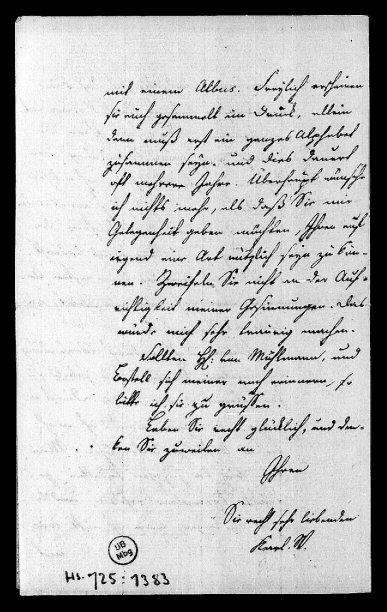 mit einem Albus. Freylich erscheinen
sie auch gesammelt im Druck, allein
dann muß erst ein ganzes Alphabet
zusammen seyn, und dies dauert
oft mehrere Jahre. Überhaupt wünsche
ich nichts mehr, als daß Sie mir
Gelegenheit geben möchten, Ihnen auf
irgend eine Art nützlich seyn zu kön-
nen. Zweifeln Sie nicht an der Auf-
richtigkeit meiner Gesinnungen. Das
würde mich sehr traurig machen.
Sollten HH: von Mühlmann, und
sich meiner noch erinnern, so
bitte ich sie zu grüssen.
Leben Sie recht glücklich, und den-
ken Sie zuweilen an
Ihren
Sie recht sehr liebenden
Karl. W.
UB
Mbg
Hs. 725:1383